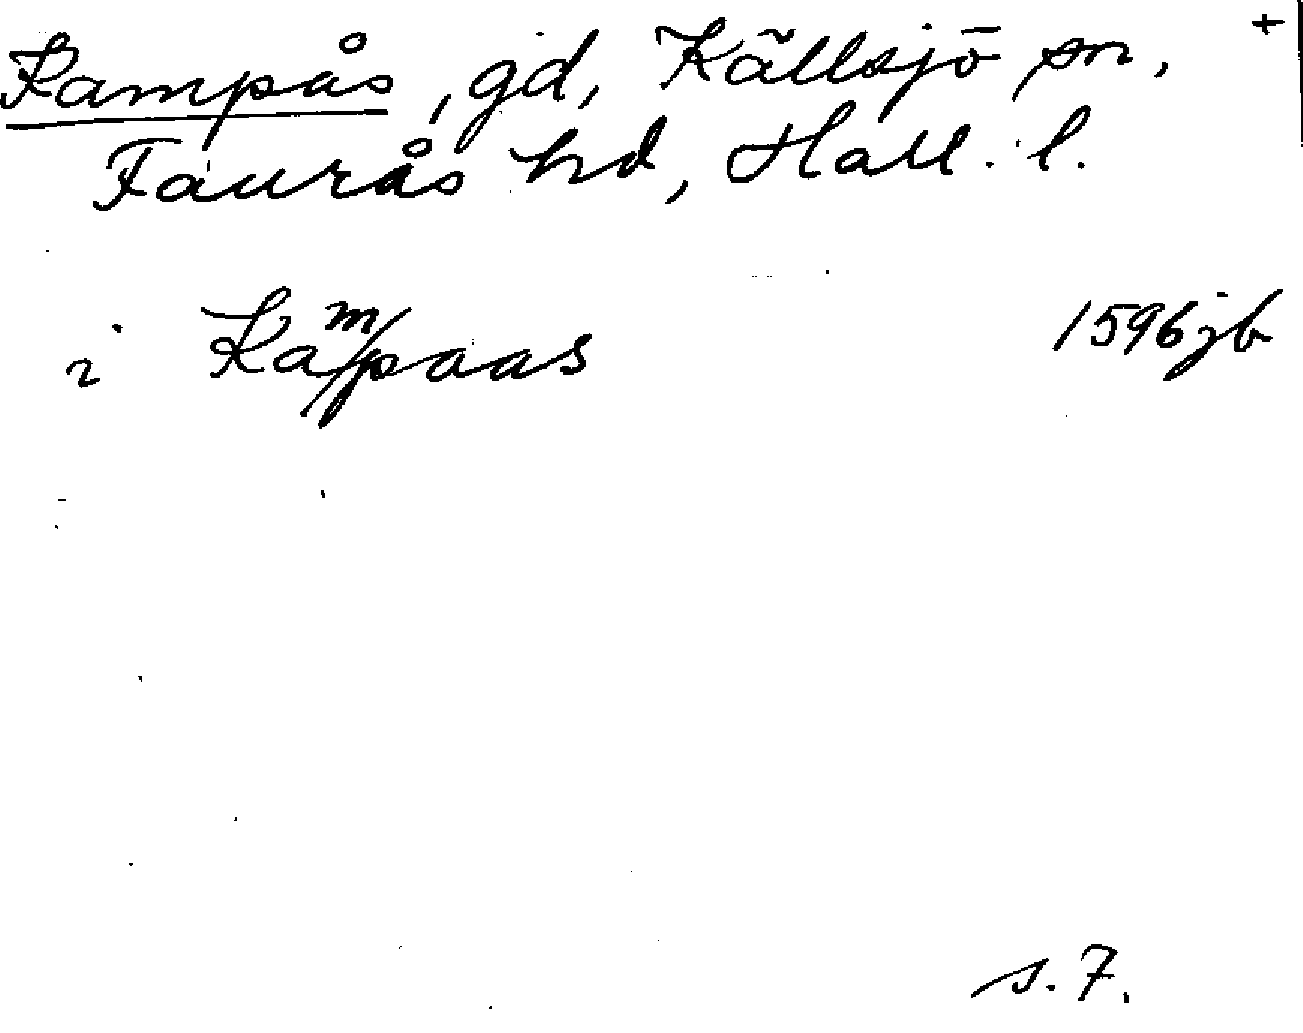 Kampås, gd, Källsjö sn, +
Faurås hd, Hall. l.
i Kampaas 1596 jb
s. 7.